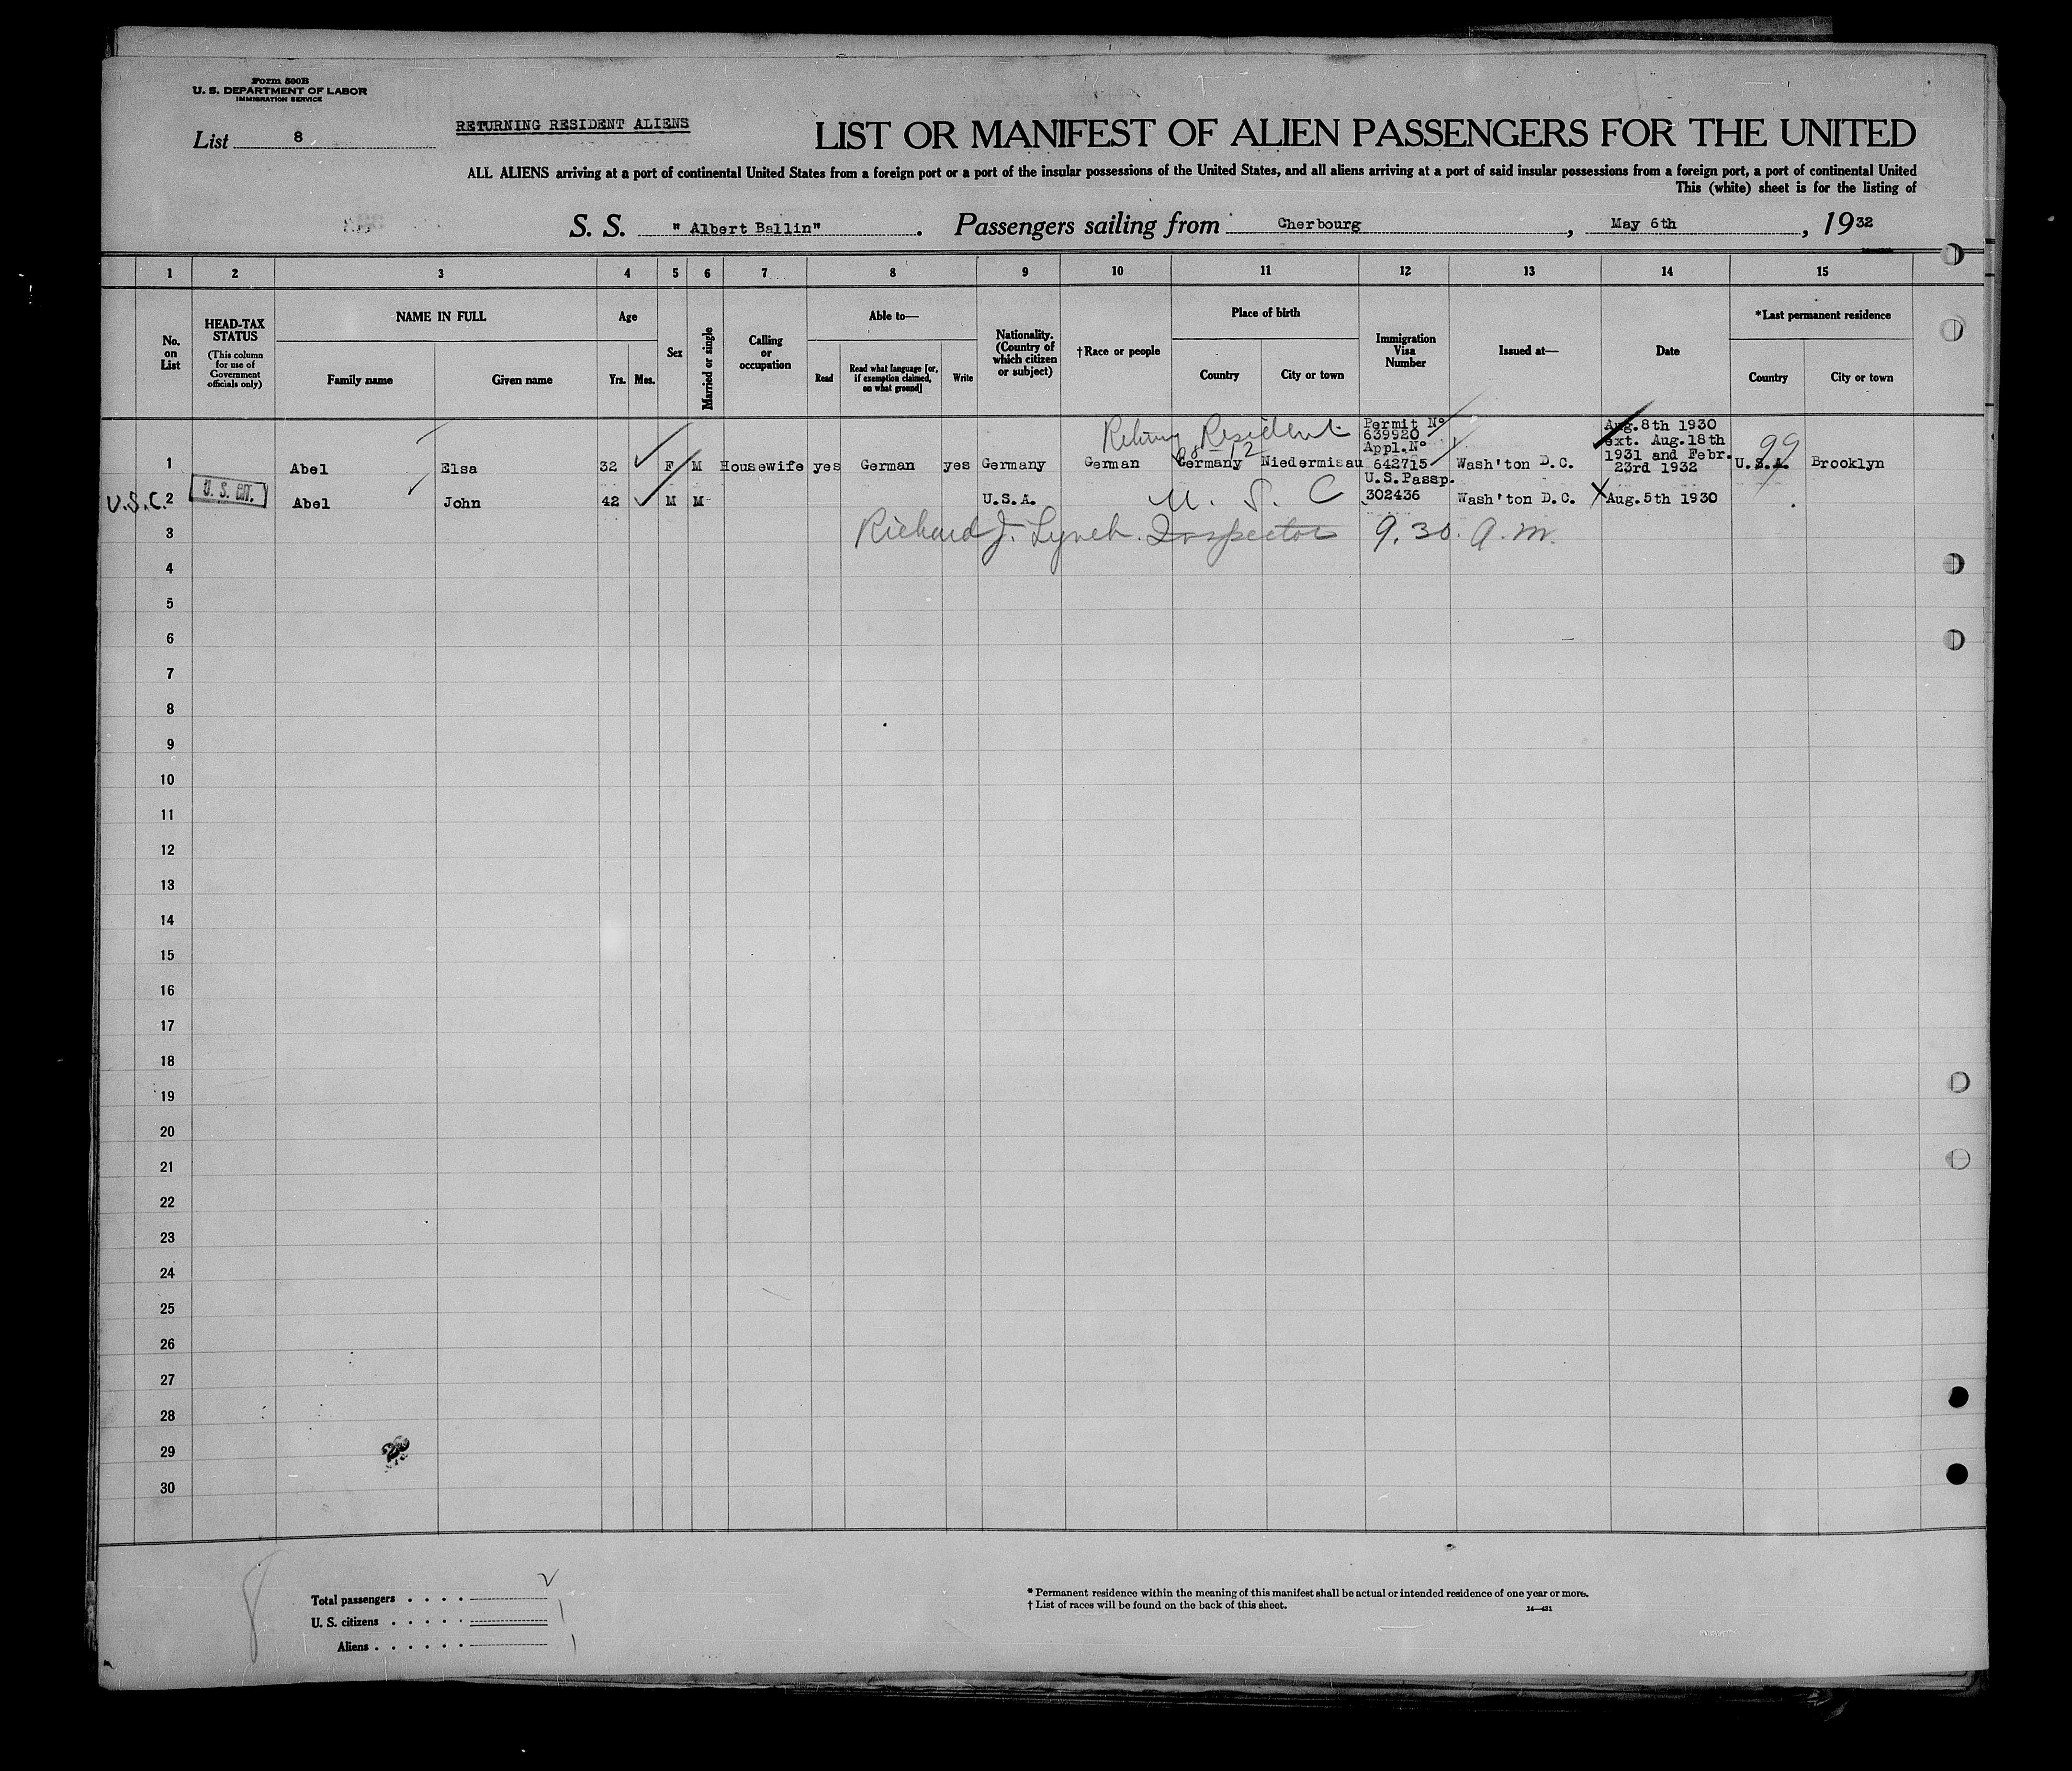 Form 500B
U. S. DEPARTMENT OF LABOR
IMMIGRATION SERVICE
List 8
RETURNING RESIDENT ALIENS
LIST OR MANIFEST OF ALIEN PASSENGERS FOR THE UNITED
ALL ALIENS arriving at a port of continental United States from a foreign port or a port of the insular possessions of the United States, and all aliens arriving at a port of said insular possessions from a foreign port, a port of continental United
This (white) sheet is for the listing of
S. S. " Albert Ballin" . Passengers sailing from Cherbourg , May 6th , 1932
1 2 3 4 5 6 7 8 9 10 11 12 13 14 15
No. on List
HEAD-TAX STATUS
(This column for use of Government officials only)
NAME IN FULL
Family name Given name
Age
Yrs. Mos.
Sex
Married or single
Calling or occupation
Able to—
Read
Read what language [or, if exemption claimed, on what ground]
Write
Nationality. (Country of which citizen or subject)
†Race or people
Place of birth
Country City or town
Immigration Visa Number
Issued at—
Date
*Last permanent residence
Country City or town
Resident
Permit Nº
639920
Appl.Nº
Aug.8th 1930
ext. Aug.18th
1931 and Febr.
23rd 1932
99
1 Abel Elsa 32 F M Housewife yes German yes Germany German Germany Niedermisau 642715 Wash'ton D.C. U.S.A. Brooklyn
U.S.C. 2 Abel John 42 M M U.S.A. U. S. C U.S.Passp. 302436 Wash'ton D.C. Aug.5th 1930
3 Richard J. Lynch. Inspector 9.30. a.m.
4
5
6
7
8
9
10
11
12
13
14
15
16
17
18
19
20
21
22
23
24
25
26
27
28
29
30
8
Total passengers 2
U. S. citizens 1
Aliens 1
* Permanent residence within the meaning of this manifest shall be actual or intended residence of one year or more.
† List of races will be found on the back of this sheet.